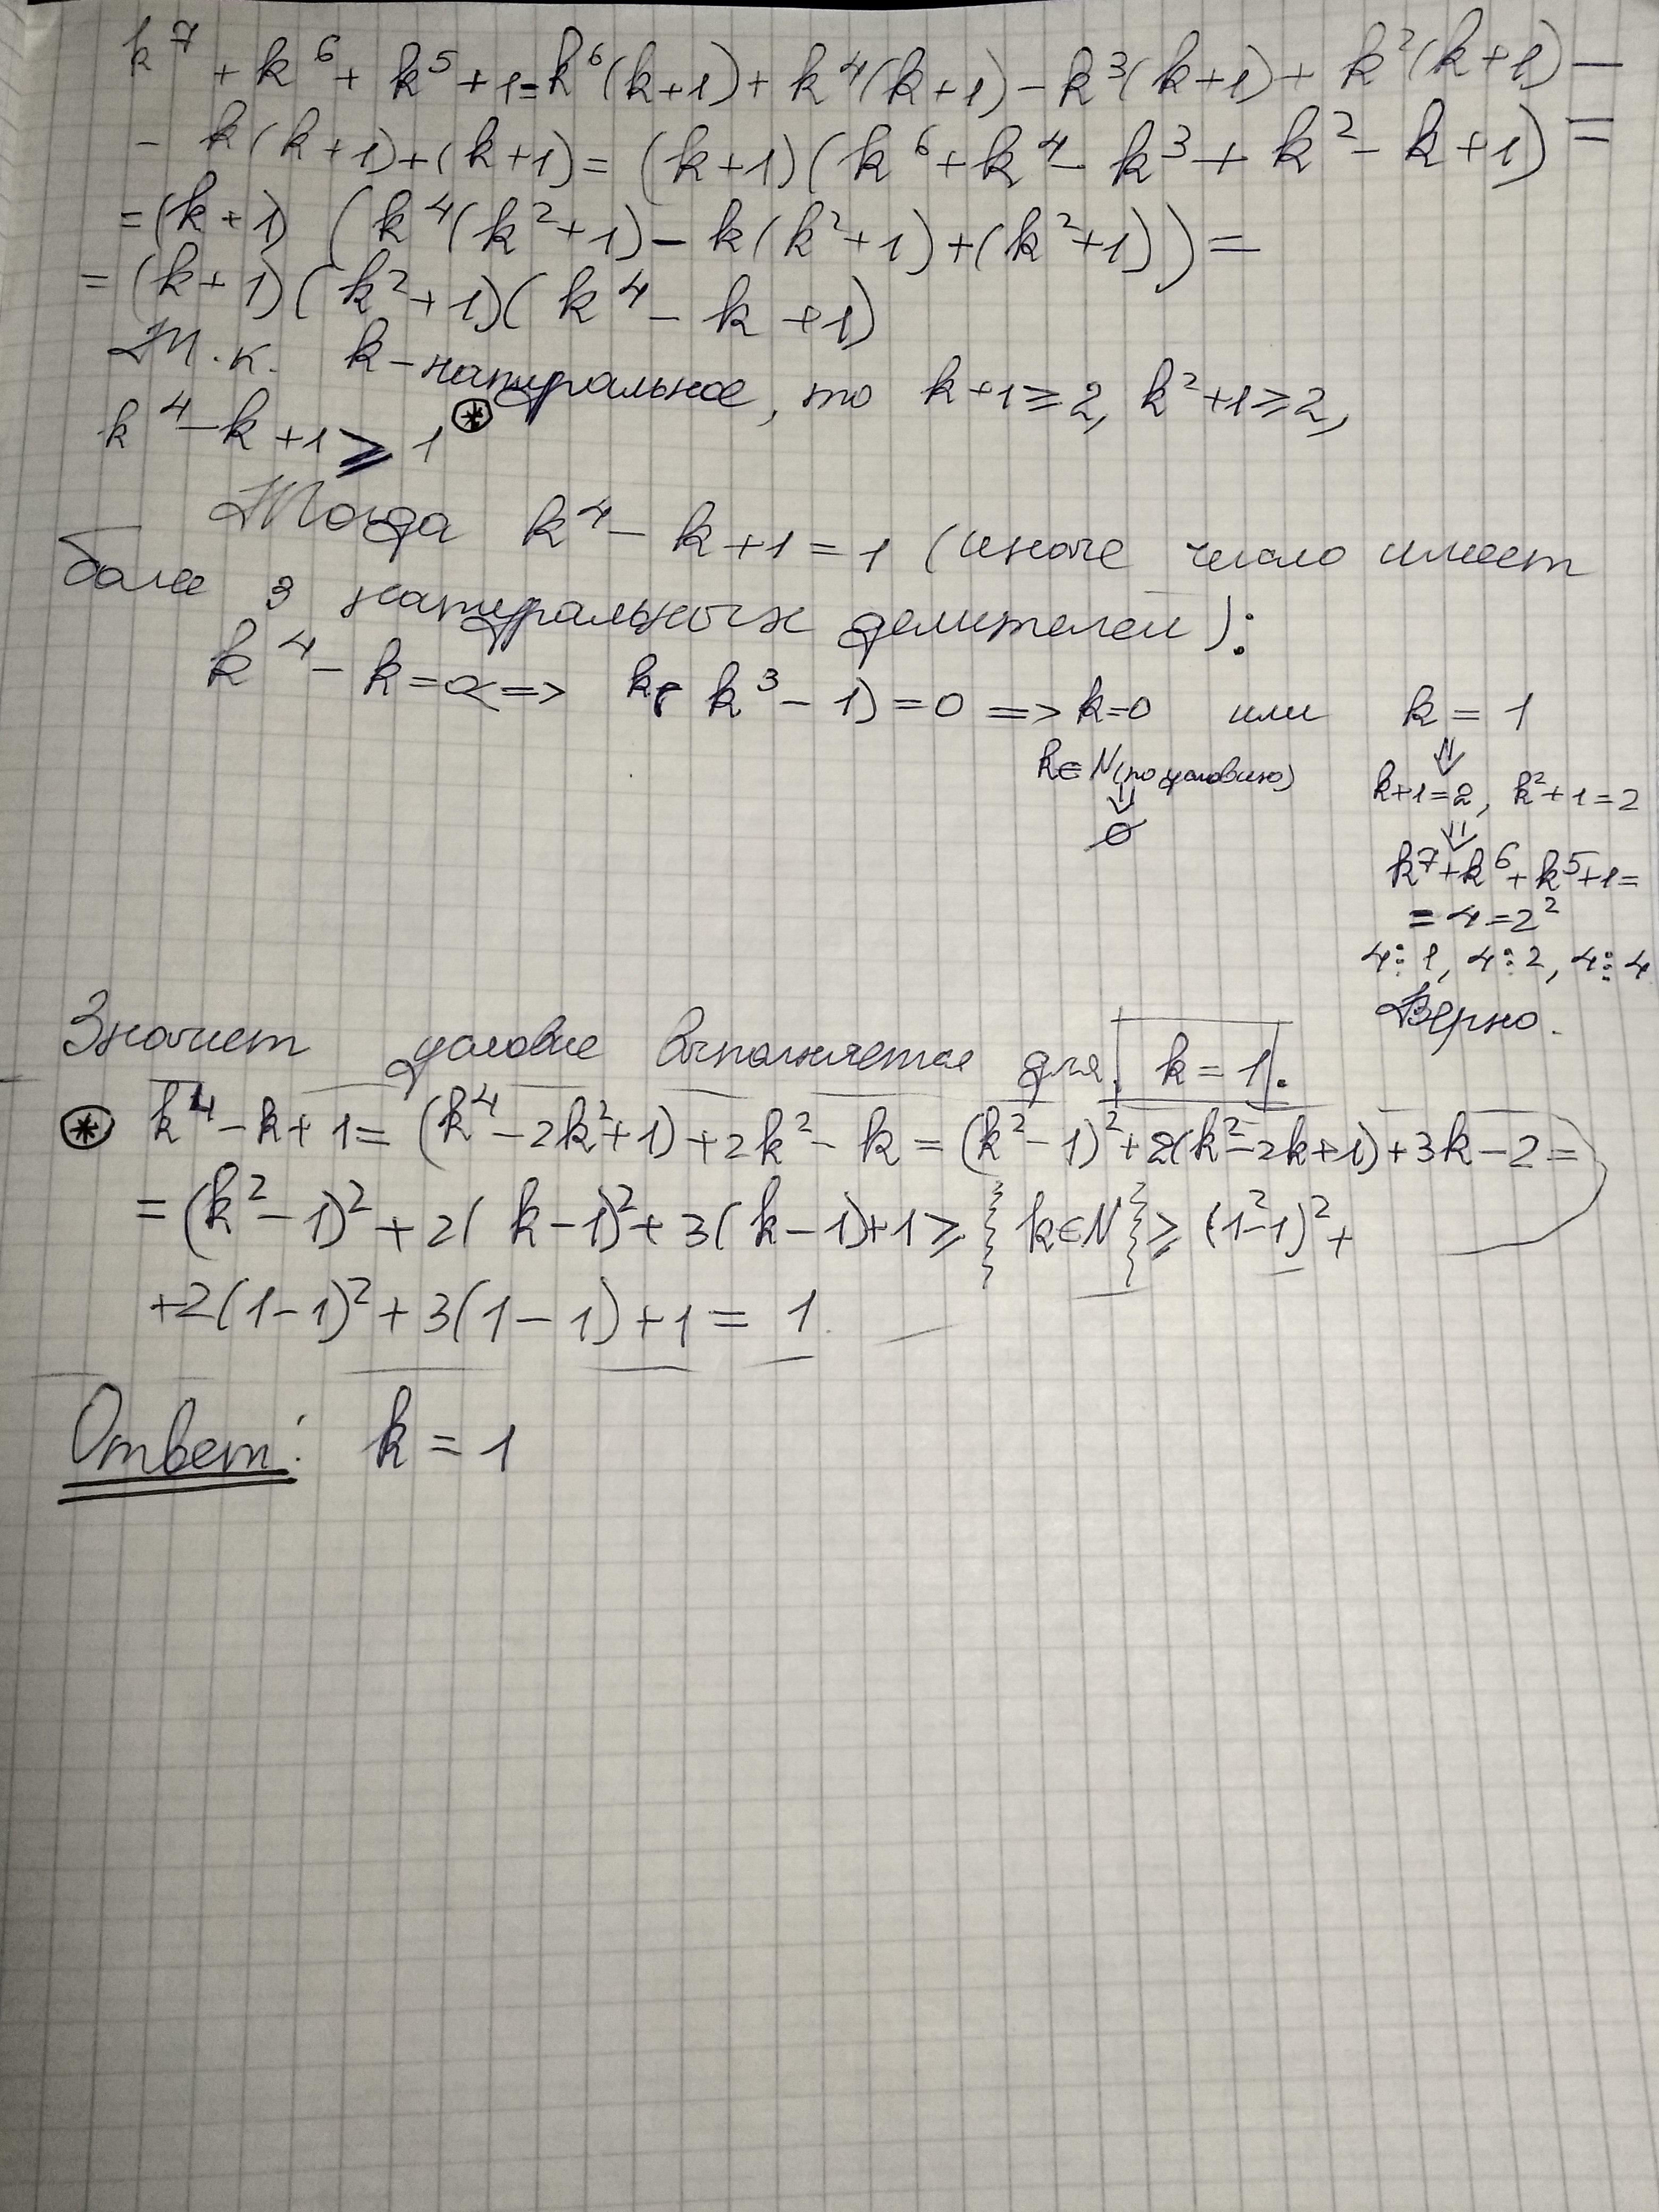 k⁷ + k⁶ + k⁵ + 1 = k⁶(k+1) + k⁴(k+1) − k³(k+1) + k²(k+1) −
− k(k+1) + (k+1) = (k+1)(k⁶ + k⁴ − k³ + k² − k + 1) =
= (k+1) (k⁴(k²+1) − k(k²+1) + (k²+1)) =
= (k+1)(k²+1)(k⁴ − k + 1)
Т.к. k – натуральное, то k+1 ⩾ 2, k²+1 ⩾ 2,
k⁴ − k + 1 ⩾ 1 ⊛
Тогда k⁴ − k + 1 = 1 (иначе число имеет
более 3 натуральных делителей):
k⁴ − k = 0 => k(k³ − 1) = 0 => k=0 или k = 1
k∈N (по условию)
⇓
∅
⇓
k+1=2, k²+1=2
⇓
k⁷+k⁶+k⁵+1=
= 4 = 2²
4⋮1, 4⋮2, 4⋮4
Верно.
Значит условие выполняется для k = 1.
⊛ k⁴ − k + 1 = (k⁴ − 2k² + 1) + 2k² − k = (k² − 1)² + 2(k² − 2k + 1) + 3k − 2 =
= (k² − 1)² + 2(k − 1)² + 3(k − 1) + 1 ⩾ {k∈N} ⩾ (1² − 1)² +
+ 2(1 − 1)² + 3(1 − 1) + 1 = 1
Ответ: k = 1